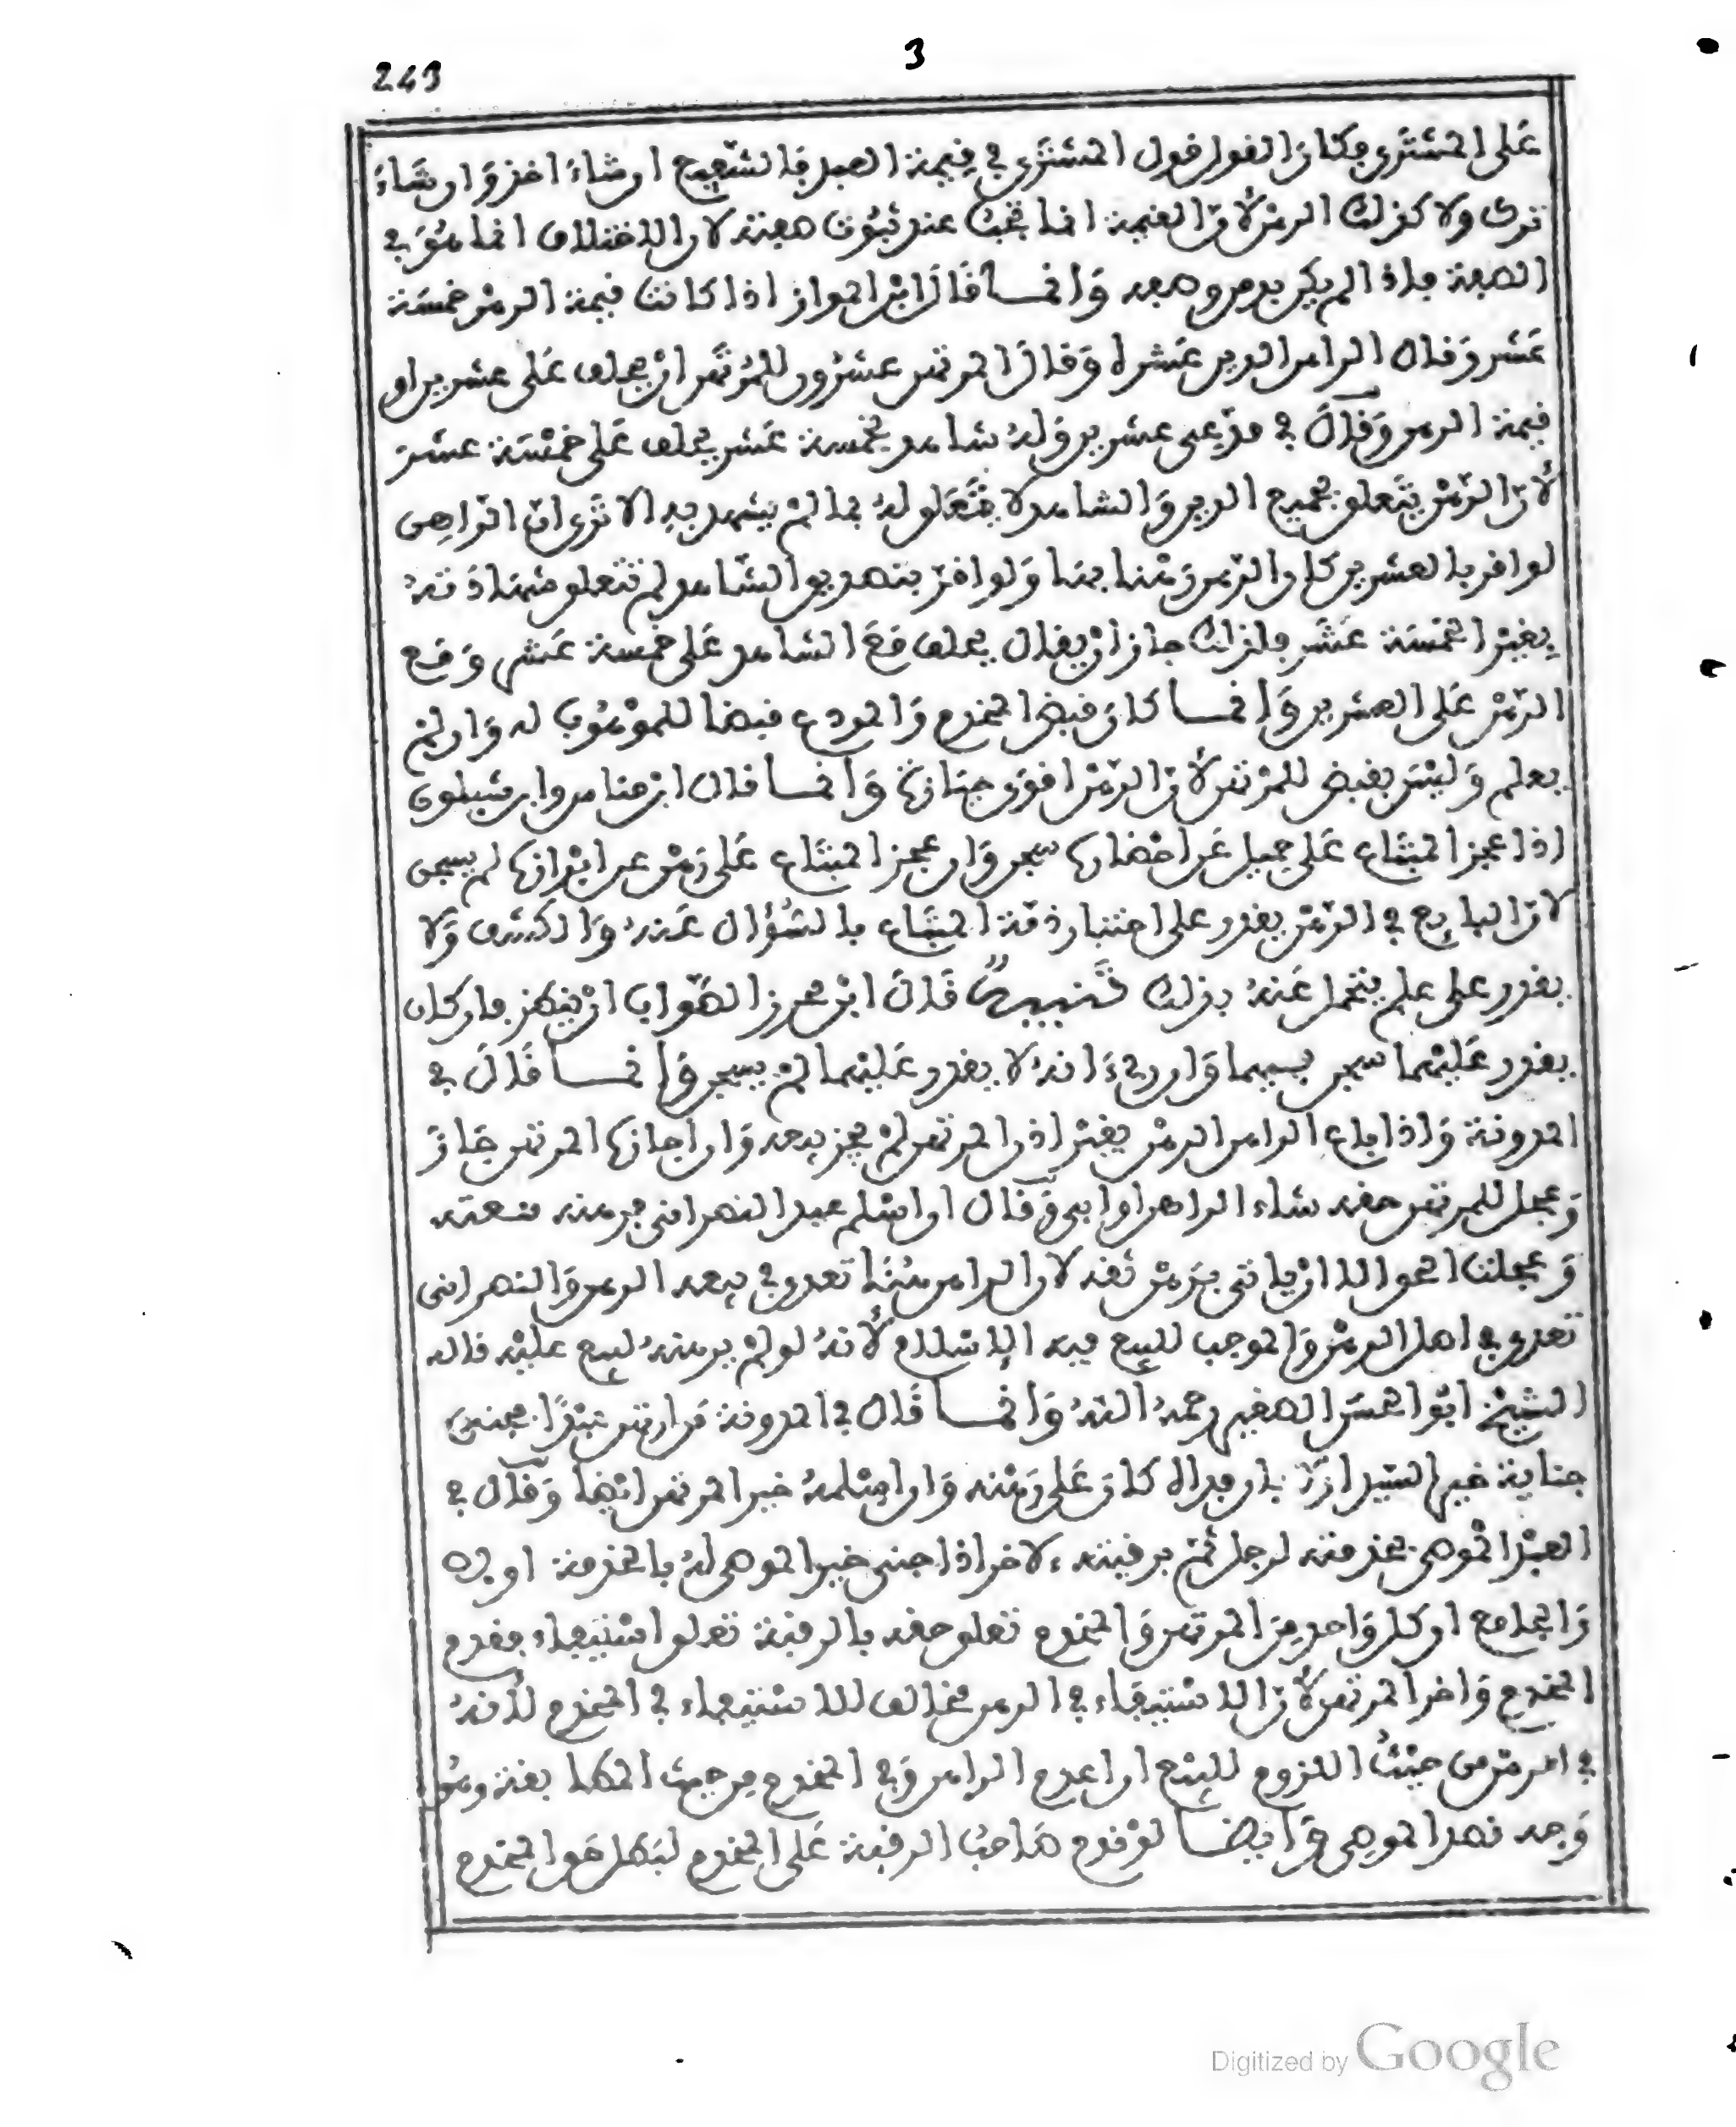 243
3
على المشتري وكان القول قول المشتري في قيمة الصبر بالشفيع ان شاء اخذ وان شاء
ترك ولا كذلك الرهن لأن القيمة انما تجب عند ثبوت صفته لان الاختلاف انما هو في
الصفة فاذا لم يكن بد من وصفه وانما قال ابن المواز اذا كانت قيمة الرهن خمسة
عشر وقال الراهن الدين عشرة وقال المرتهن عشرون للمرتهن ان يحلف على عشرين او
قيمة الرهن وقال في مدعي عشرين وله شاهد بخمسة عشر يحلف على خمسة عشر
لأن الرهن يتعلق بجميع الدين والشاهد لا يتعلق له بما لم يشهد به الا ترى ان الراهن
لو اقر بالعشرين كان الرهن رهنا بها ولو اقر بتصديق الشاهد لم تتعلق شهادته
بغير الخمسة عشر فلذلك جاز ان يقال يحلف مع الشاهد على خمسة عشر ومع
الرهن على العشرين وانما كان قبض المخدم والمودع قبضا للموهوب له وان لم
يعلم وليس بقبض للمرتهن لأن الرهن اقوى حيازة وانما قال ابن مناس وابن شبلون
اذا عجز المبتاع على حميل عن احضارها سجن وان عجز المبتاع على رهن عن ابرازها لم يسجن
لان البايع في الرهن يقدر على اختبار ذمة المبتاع بالسؤال عنه والكشف ولا
يقدر على علم يتحمل عنه بذلك تنبيه قال ابن محرز الصواب ان ينظر فان كان
يقدر عليهما سجن بسببهما وان ريء انه لا يقدر عليهما لم يسجن وانما قال في
المدونة واذا باع الراهن الرهن بغير اذن المرتهن لم يجز بيعه وان اجازها المرتهن جاز
وعجل للمرتهن حقه شاء الراهن او ابى وقال ان اسلم عبد النصراني فرهنه بعته
وعجلت الحق الا ان ياتي برهن ثقة لان الراهن هنا تعدى في بيعه الرهن والنصراني
تعدى في اصل الرهن والموجب للبيع فيه الاسلام لأنه لو لم يرهنه لبيع عليه قاله
الشيخ ابو الحسن الصغير رحمه الله وانما قال في المدونة من ارتهن عبدا فجنى
جناية خير السيد اولا فان فداه كان على رهنه وان اسلمه خير المرتهن ايضا وقال في
العبد الموصى بخدمته لرجل ثم برقبته لاخر اذا جنى خير الموصى له بالخدمة اولا
والجامع ان كل واحد من المرتهن والمخدم تعلق حقه بالرقبة تعلق استيفاء فقدم
المخدم واخر المرتهن لأن الاستيفاء في الرهن مخالف للاستيفاء في المخدم لأنه
في المرتهن من حيث اللزوم للبيع ان اعدم الراهن وفي المخدم من حيث المطابقة وهو
وجه قصد الموصي وايضا لو قدم صاحب الرقبة على المخدم لبطل حق المخدم
Digitized by Google